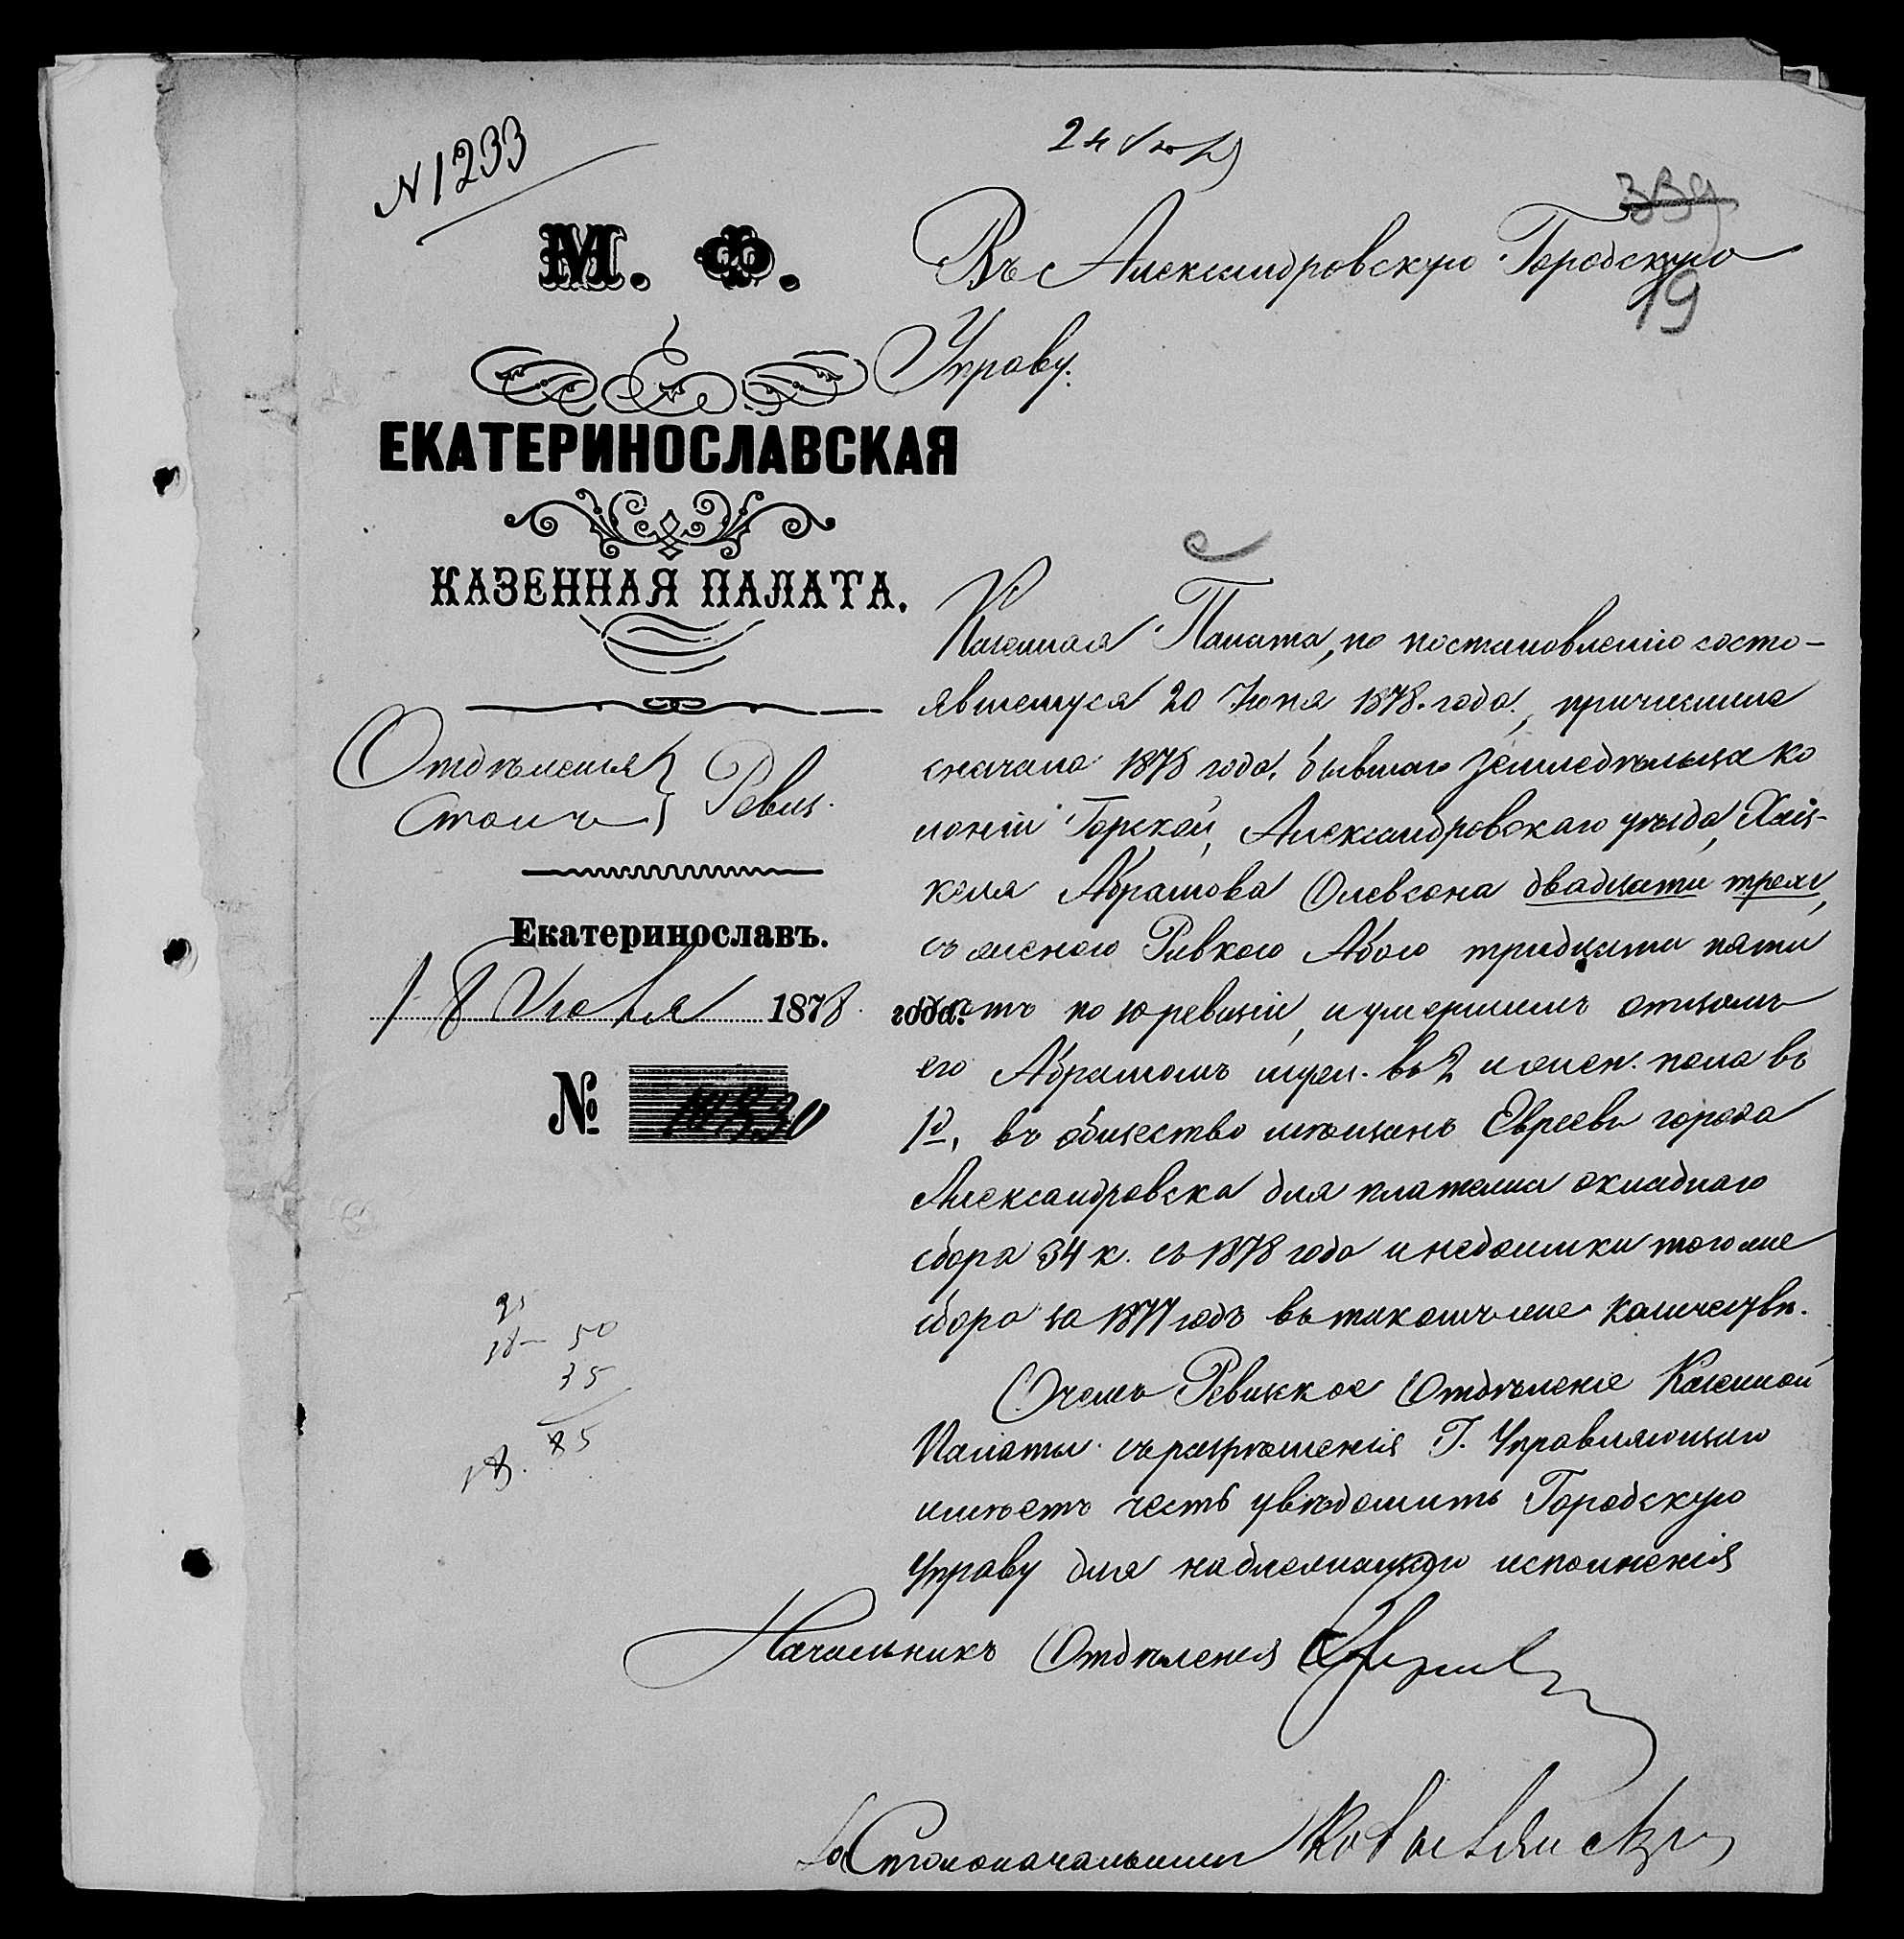 N 1233
24 Іюл
339
19
М. Ф.
Въ Александровскую Городскую
Управу.
ЕКАТЕРИНОСЛАВСКАЯ
КАЗЕННАЯ ПАЛАТА.
Отдѣленія } Ревиз.
Столъ
Екатеринославъ.
18 Іюля 1878 года.
№ 10830
Казенная Палата, по постановленію состо-
явшемуся 20 Іюня 1878 года, причислила
сначала 1878 года, бывшаго земледѣльца ко
лоніи Горькой, Александровскаго уѣзда, Хаіс-
келя Абрамова Олевсона двадцати трехъ,
съ женою Ривкою Абою тридцати пяти
лѣтъ по 10 ревизіи, и умершимъ отцомъ
его Абрамомъ муж. въ 2 и жен. пола въ
1й, въ общество мѣщанъ Евреевъ города
Александровска для платежа окладнаго
сбора 34 к. съ 1878 года и недоимки тогоже
сбора за 1877 годъ въ такомъ же количествѣ.
О чемъ Ревизкое Отдѣленіе Казенной
Палаты съ разрѣшенія Г. Управляющаго
имѣетъ честь увѣдомить Городскую
Управу для надлежащаго исполненія
50
35
85
Начальникъ Отдѣленія
За Столоначальника